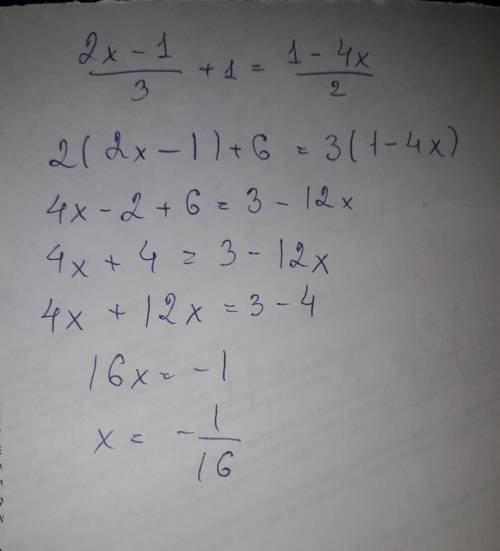 (2x - 1)/3 + 1 = (1 - 4x)/2
2(2x - 1) + 6 = 3(1 - 4x)
4x - 2 + 6 = 3 - 12x
4x + 4 = 3 - 12x
4x + 12x = 3 - 4
16x = -1
x = -1/16